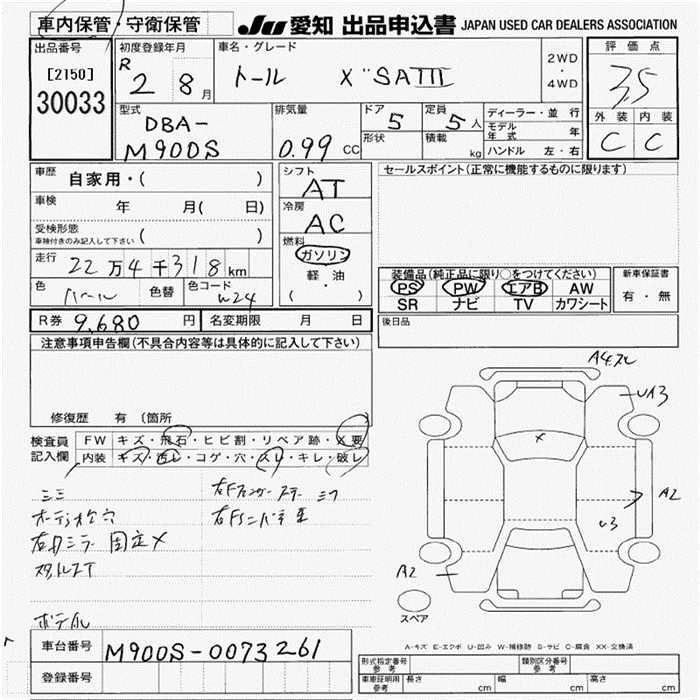 車内保管・守衛保管
JU 愛知 出品申込書 JAPAN USED CAR DEALERS ASSOCIATION
出品番号
[2150]
30033
初度登録年月
R 2 8 月
車名・グレード
トール X "SAIII
2WD
・
4WD
評価点
3.5
外装 内装
C C
型式
DBA-
M900S
排気量
0.99 CC
ドア 5
形状
定員 5 人
積載 kg
ディーラー・並行
モデル年式 年
ハンドル 左・右
車歴
自家用・( )
車検 年 月( 日)
受検形態
車検付きのみ記入して下さい ( )
走行
22万4千318km
色 パール 色替 色コード W24
シフト
AT
冷房
AC
燃料
ガソリン
軽・油
( )
セールスポイント(正常に機能するものに限ります)
装備品(純正品に限り○をつけてください)
PS PW エアB AW
SR ナビ TV カワシート
新車保証書
有・無
後日品
R券 9,680 円 名変期限 月 日
注意事項申告欄(不具合内容等は具体的に記入して下さい)
修復歴 有 (箇所 )
検査員
記入欄
FW キズ・飛石・ヒビ割・リペア跡・X要
内装 キズ・汚レ・コゲ・穴・スレ・キレ・破レ
オーディオ 穴
固定X
A4
UA3
X
A2
U3
A2
スペア
A-キズ E-エクボ U-凹み W-補修跡 S-サビ C-腐食 XX-交換済
車台番号 M900S-0073261
登録番号
形式指定番号
参考
類別区分番号
参考
車庫証明用
参考
長さ cm 幅 cm 高さ cm